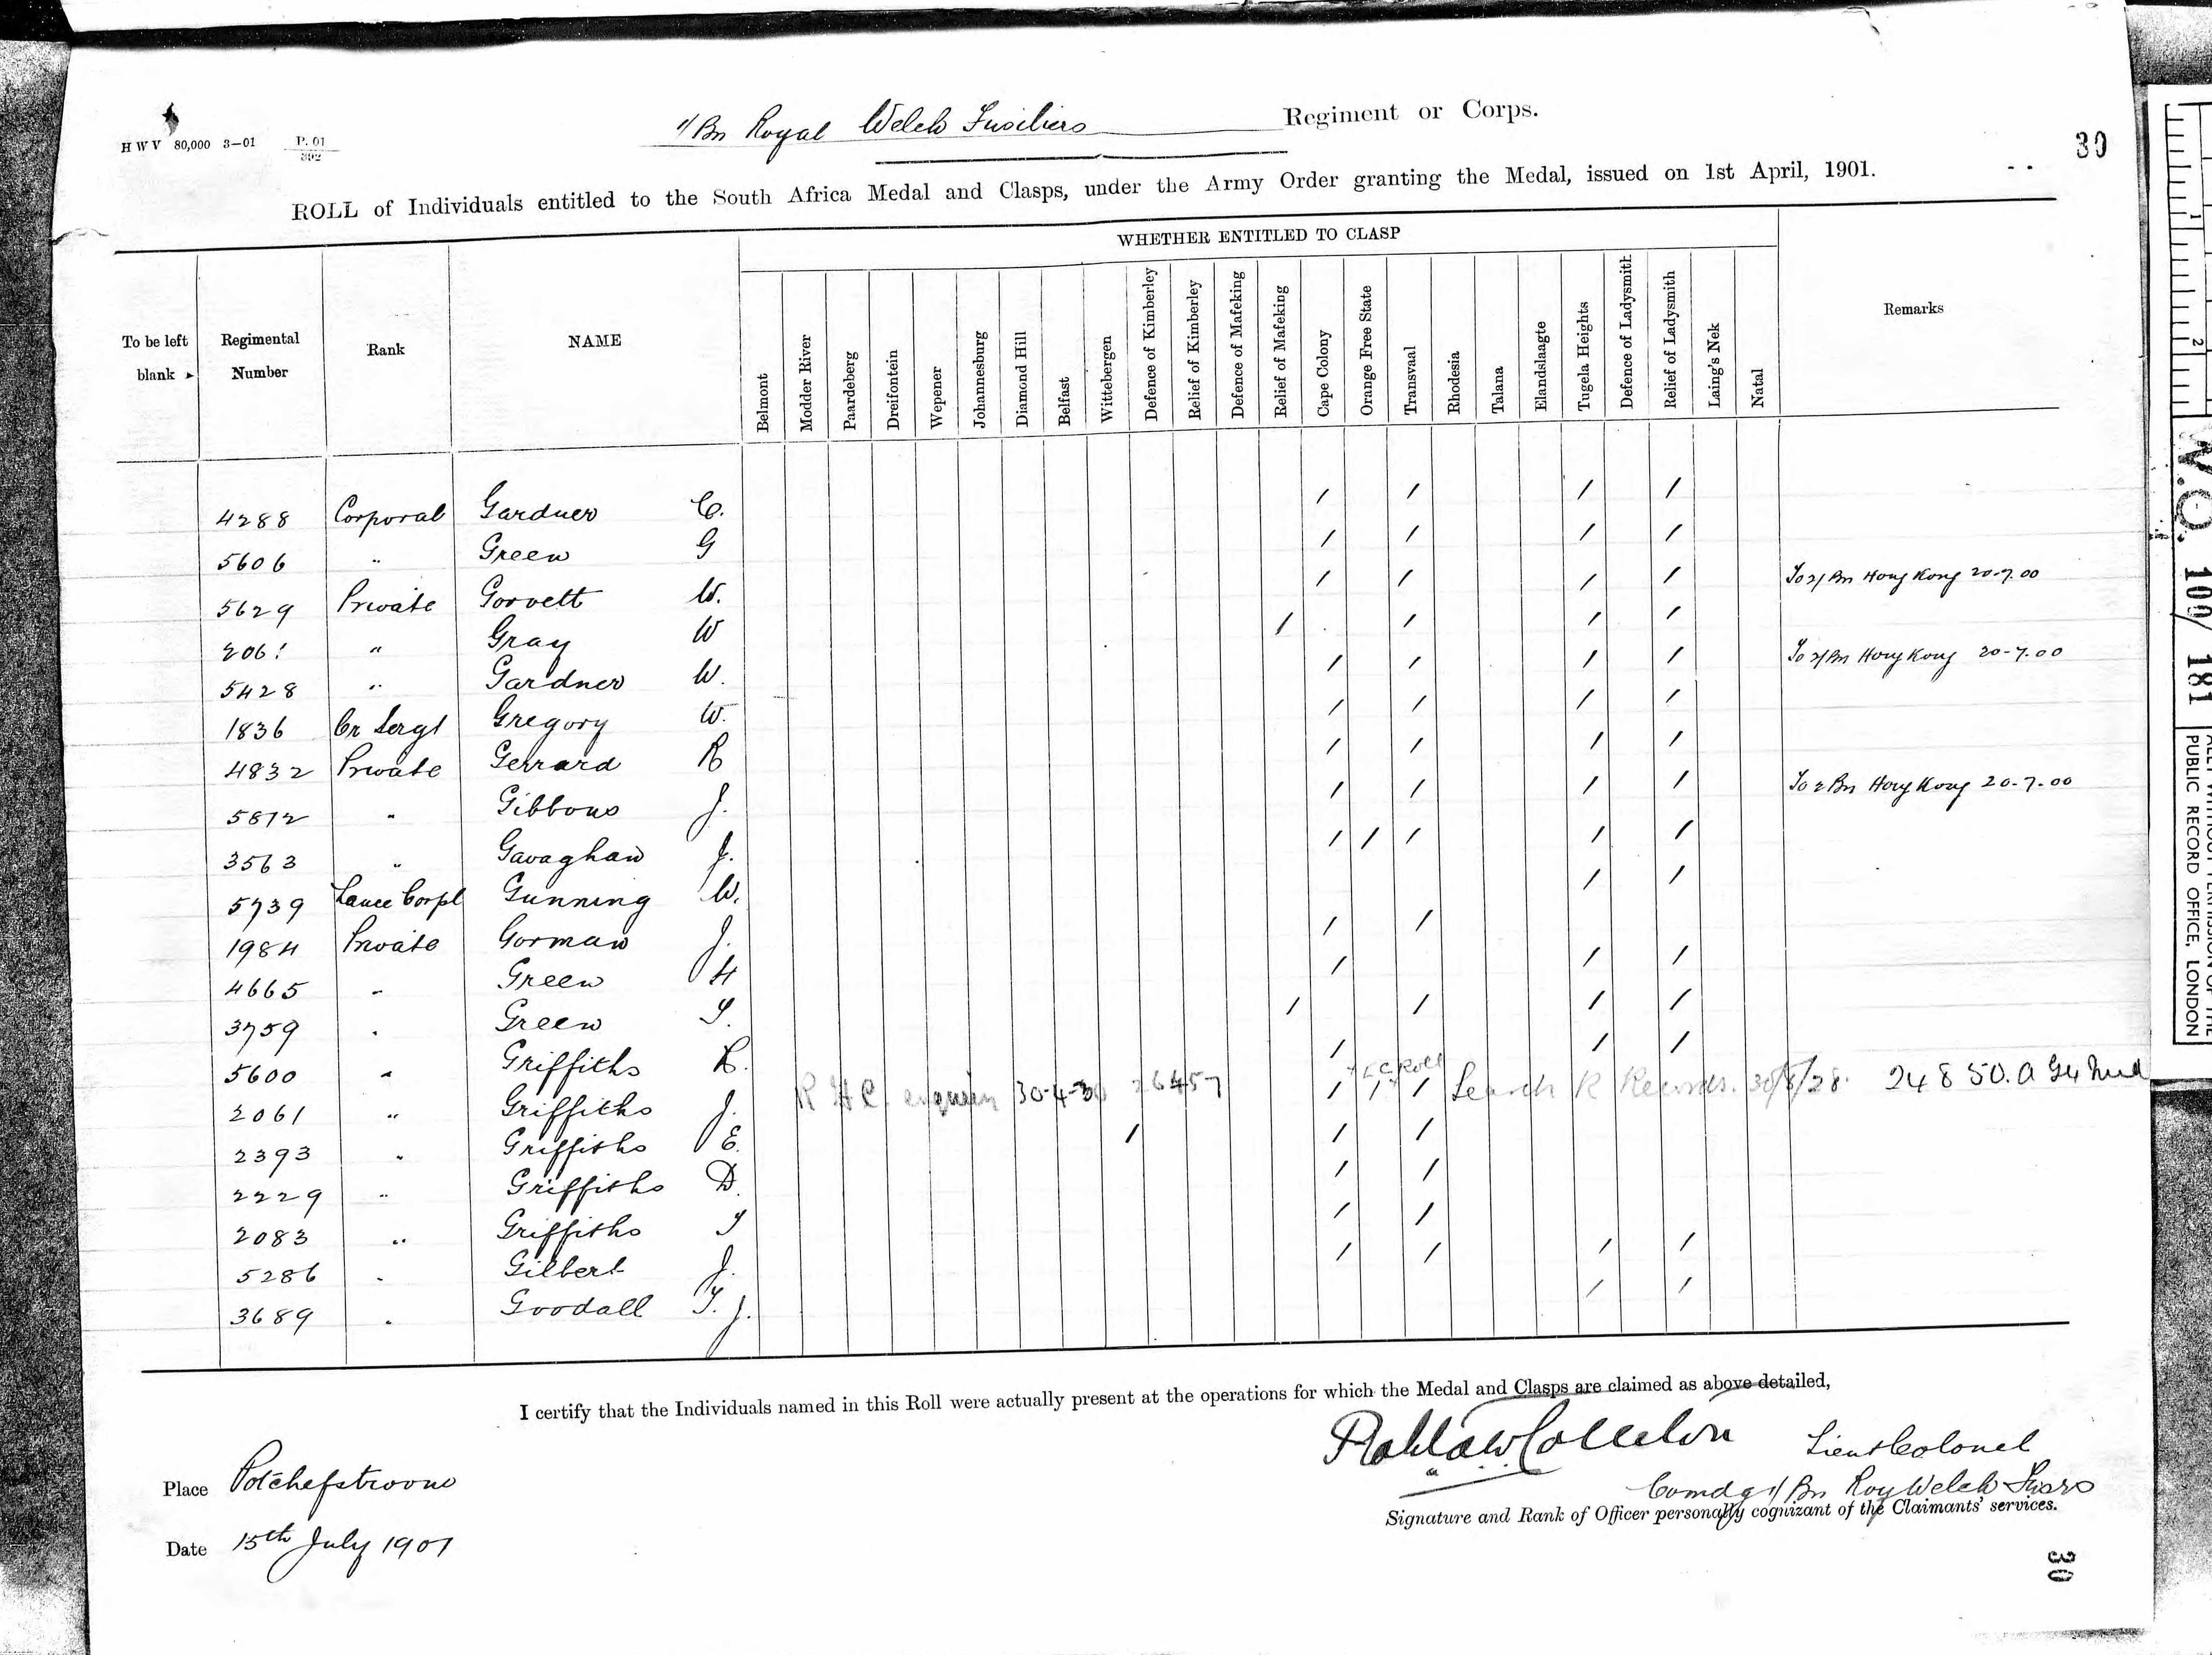 H W V 80,000 3—01 P. 01
392
1/ Bn Royal Welch Fusiliers Regiment or Corps.
30
ROLL of Individuals entitled to the South Africa Medal and Clasps, under the Army Order granting the Medal, issued on 1st April, 1901.
WHETHER ENTITLED TO CLASP
To be left blank
Regimental Number
Rank
NAME
Belmont
Modder River
Paardeberg
Dreifontein
Wepener
Johannesburg
Diamond Hill
Belfast
Wittebergen
Defence of Kimberley
Relief of Kimberley
Defence of Mafeking
Relief of Mafeking
Cape Colony
Orange Free State
Transvaal
Rhodesia
Talana
Elandslaagte
Tugela Heights
Defence of Ladysmith
Relief of Ladysmith
Laing's Nek
Natal
Remarks
4288 Corporal Gardner C. / / / /
5606 " Green G / / / /
5629 Private Gorvett W. / / / / To 2/ Bn Hong Kong 20-7.00
206! " Gray W / / / /
5428 " Gardner W. / / / / To 2/ Bn Hong Kong 20-7.00
1836 Cr Sergt Gregory W. / / / /
4832 Private Gerrard R / / / /
5812 " Gibbons J. / / / / To 2 Bn Hong Kong 20-7.00
3563 " Gavaghan J. / / / / /
5739 Lance Corpl Gunning W. / /
1984 Private Gorman J. / /
4665 " Green H / / /
3759 " Green T. / / / /
5600 " Griffiths R. / / /
2061 " Griffiths J. R H C enquiry 30-4-30 26457 / / / Roll Search R Records. 30/8/28. 24850.
2393 " Griffiths E. / / /
2229 " Griffiths D. / /
2083 " Griffiths T / /
5286 " Gilbert J. / / / /
3689 " Goodall T. J. / /
I certify that the Individuals named in this Roll were actually present at the operations for which the Medal and Clasps are claimed as above detailed,
Lieut Colonel
Comdg 1/ Bn Roy Welch Fusrs
Signature and Rank of Officer personally cognizant of the Claimants' services.
Place Potchefstroom
Date 15th July 1901
30
1
2
W.O. 100/ 181
PUBLIC RECORD OFFICE, LONDON